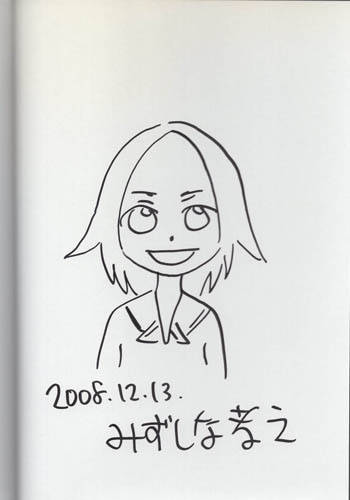 2008.12.13.
みずしな孝之